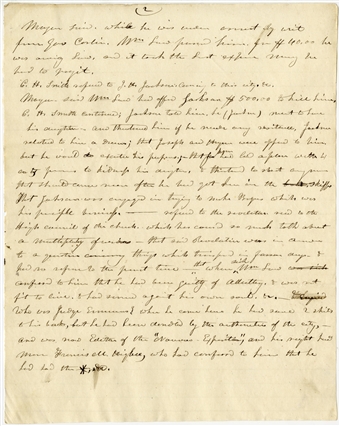 2
Mayor said, while he was under arrest by writ
from Gov Carlin, Wm Law pursued him, for $40.00 he
was owing Law, and it took the last expence money he
had to pay it.
C. H. Smith referd to J. H. Jacksons coming to this city &c.
Mayor said Wm Law had offerd Jackson $500.00 to kill him,
C. H. Smith continued, Jackson told him, he (Jackson) meant to have
his daughter & threatend him if he made any resistence, Jackson
related to him a dream, that Joseph and Hyrum were opposed to him
but he would his purposes, that he had laid a plan with
four persons to kidnap his daughter, & threatend to shoot any one
that should come near after he had got her in the skiff
that Jackson was engaged in trying to make Bogus which was
his principle business — referd to the revelation read to the
High council of the church, which has caused so much talk about
a multiplicity of wives — that said Revelation was in answer
to a question concerning things which transpired in former days &
had no refference to the present time — that when sick Wm Law
confessed to him that he had been guilty of Adultery, & was not
fit to live, & had sinned against his own soul, &c.
Who was Judge Emmons? when he came here he had scarce 2 shirts
to his back, but he had been dandled by the authorities of the city, —
and was now Editor of the "Nauvoo Expositor," and his right hand
man Francis M. Higbee, who had confessed to him that he
had had the